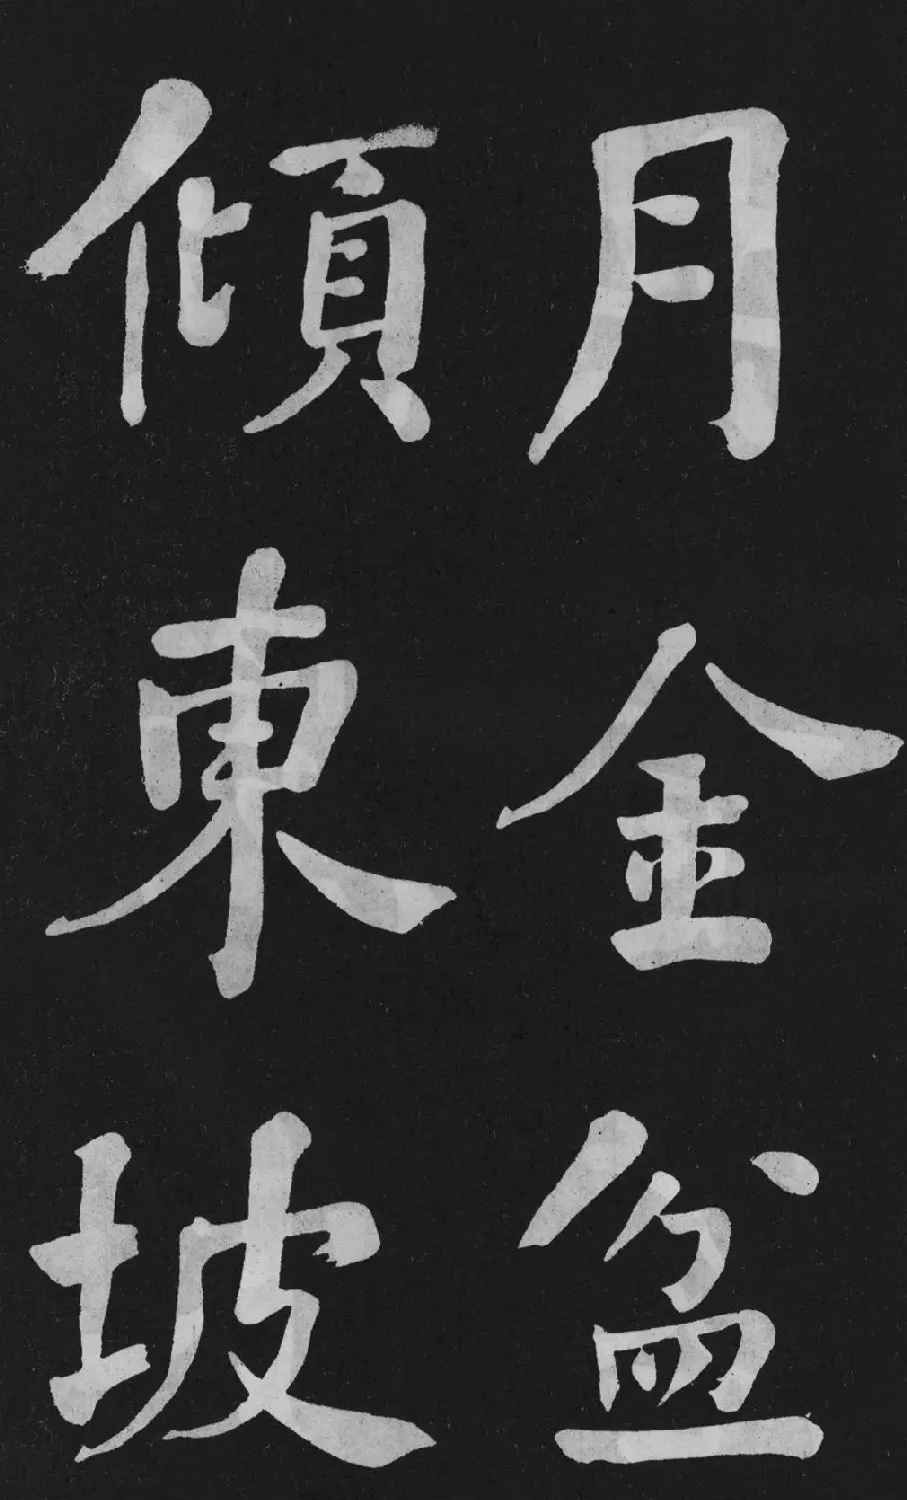 月金盆
傾東坡